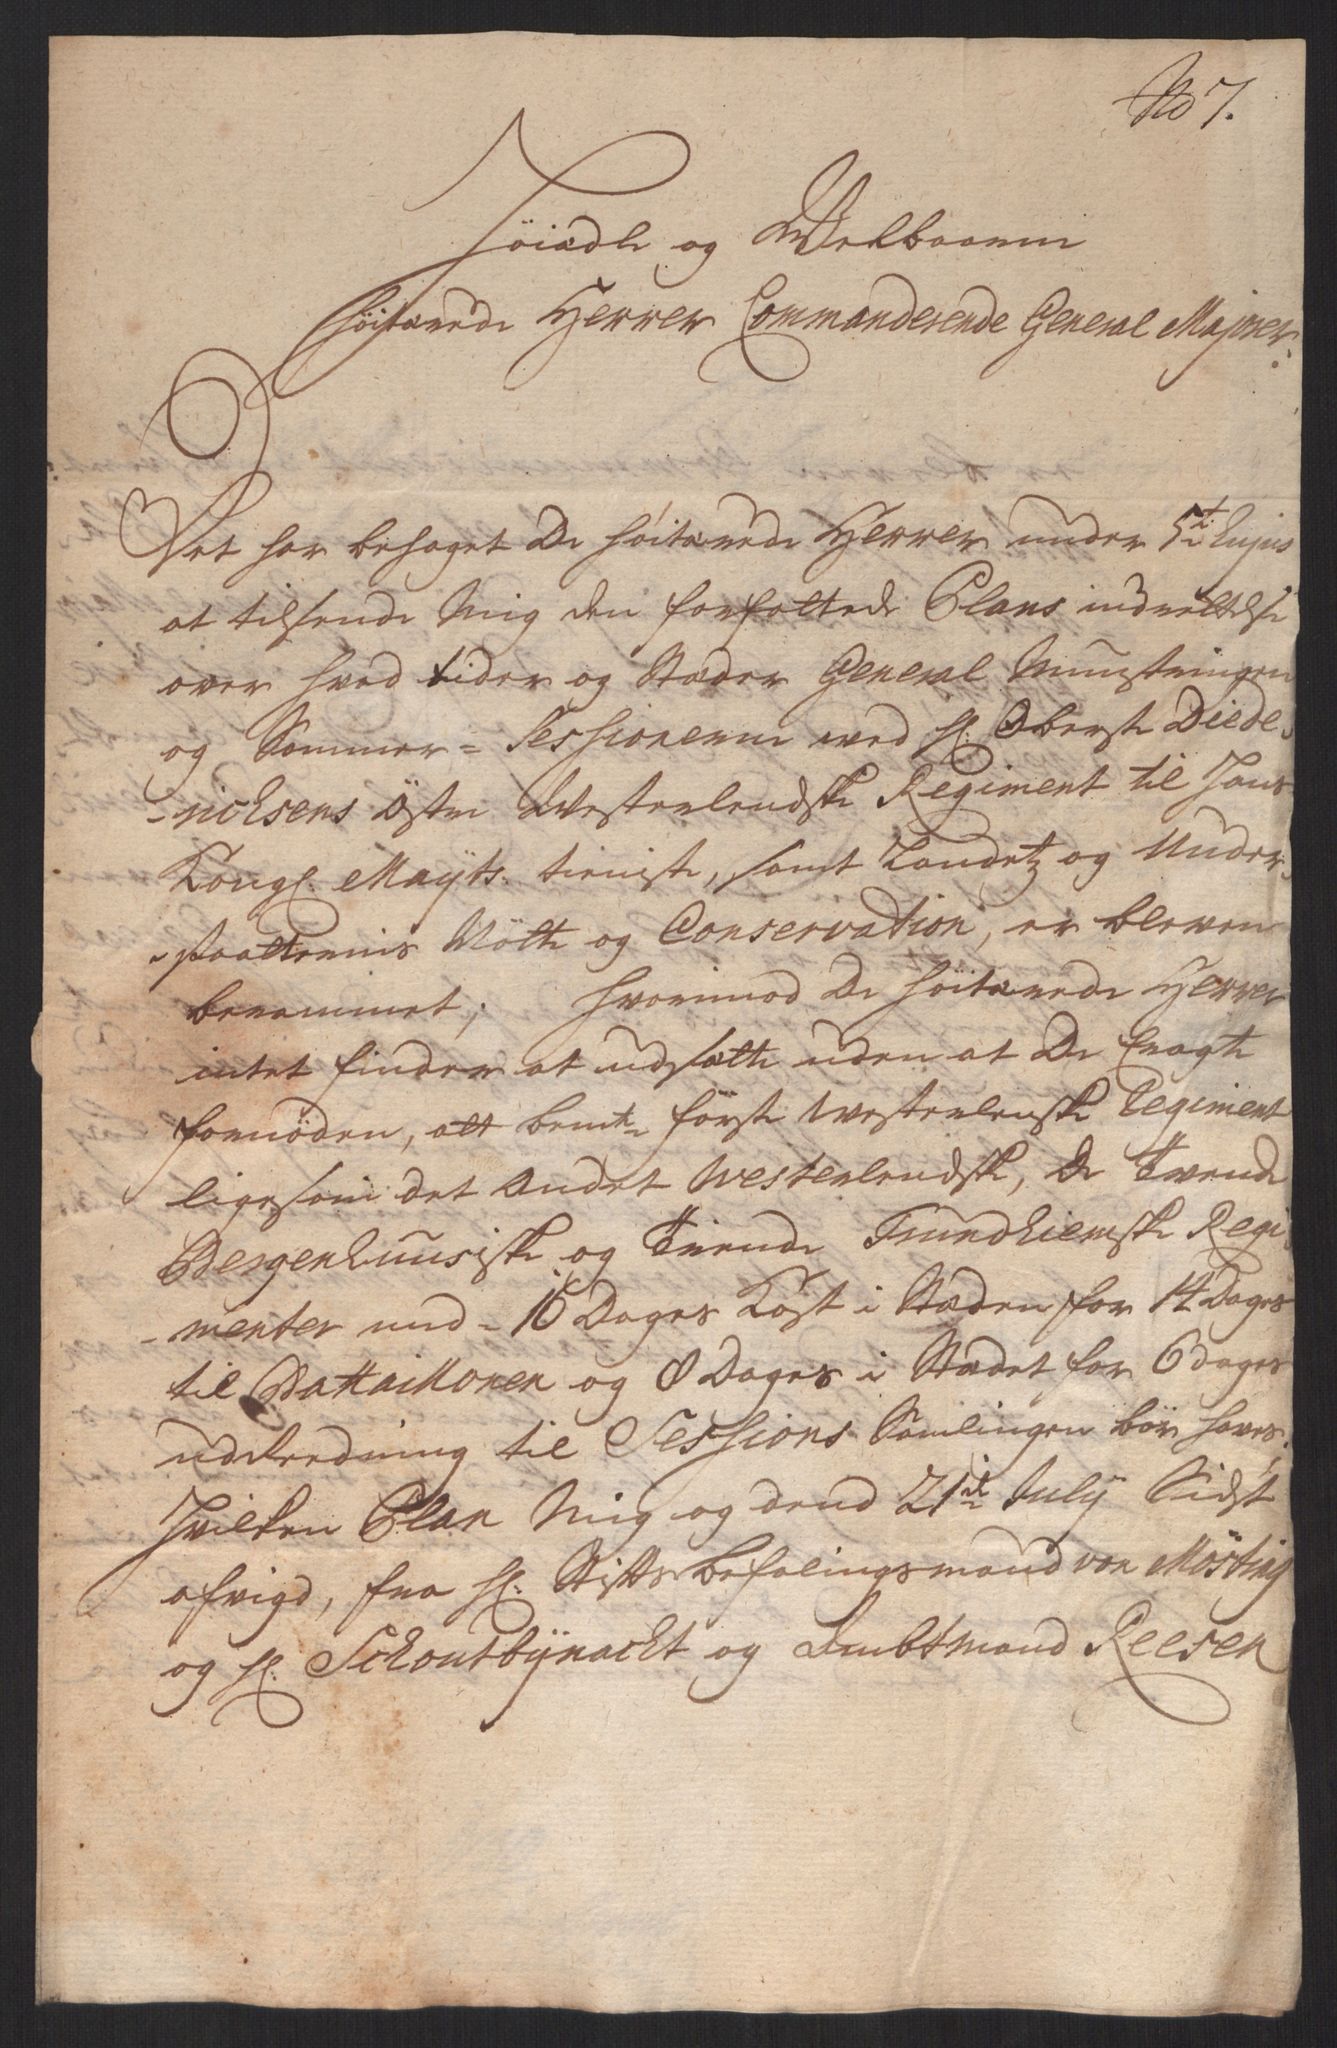 No 7.
Höiædle og Welbaarne
Höitærede Herrer Commanderende General Majorer.
Det har behaget De höitærede Herrer under 5te hujus
at tilsende Mig den forfattede Plans indrettelse
over hvad tider og Stæder General Munstringen
og Sommer-Sessionerne ved H. Oberste Diede-
-richsens öster Westerlendske Regiment til Hans
Kongl. Mayts. tieniste, samt Landetz og Under-
-saatternis Nötte og Conservation, er bleven
berammet; hvorimod De höitærede Herrer
intet finder at udsætte uden at De Eragte
fornöden, att bemte förste Westerlenske Regiment
ligesom det Andet Westerlendske, De Tvende
Bergenhuusiske og Trende Trundhiemske Regi-
-menter med 16 Dages Kost i Stæden for 14 Dages
til Battaillonen og 8 Dages i Stædet for 6 dages
udreedning til Sessions Samlingen bör haves,
Hvilken Plan Mig og dend 21de July Sidst
afvigt, fra H. Stiftsbefalingsmand von Mösting
og H. Schoutbÿnacht og Ambtmand Reesen